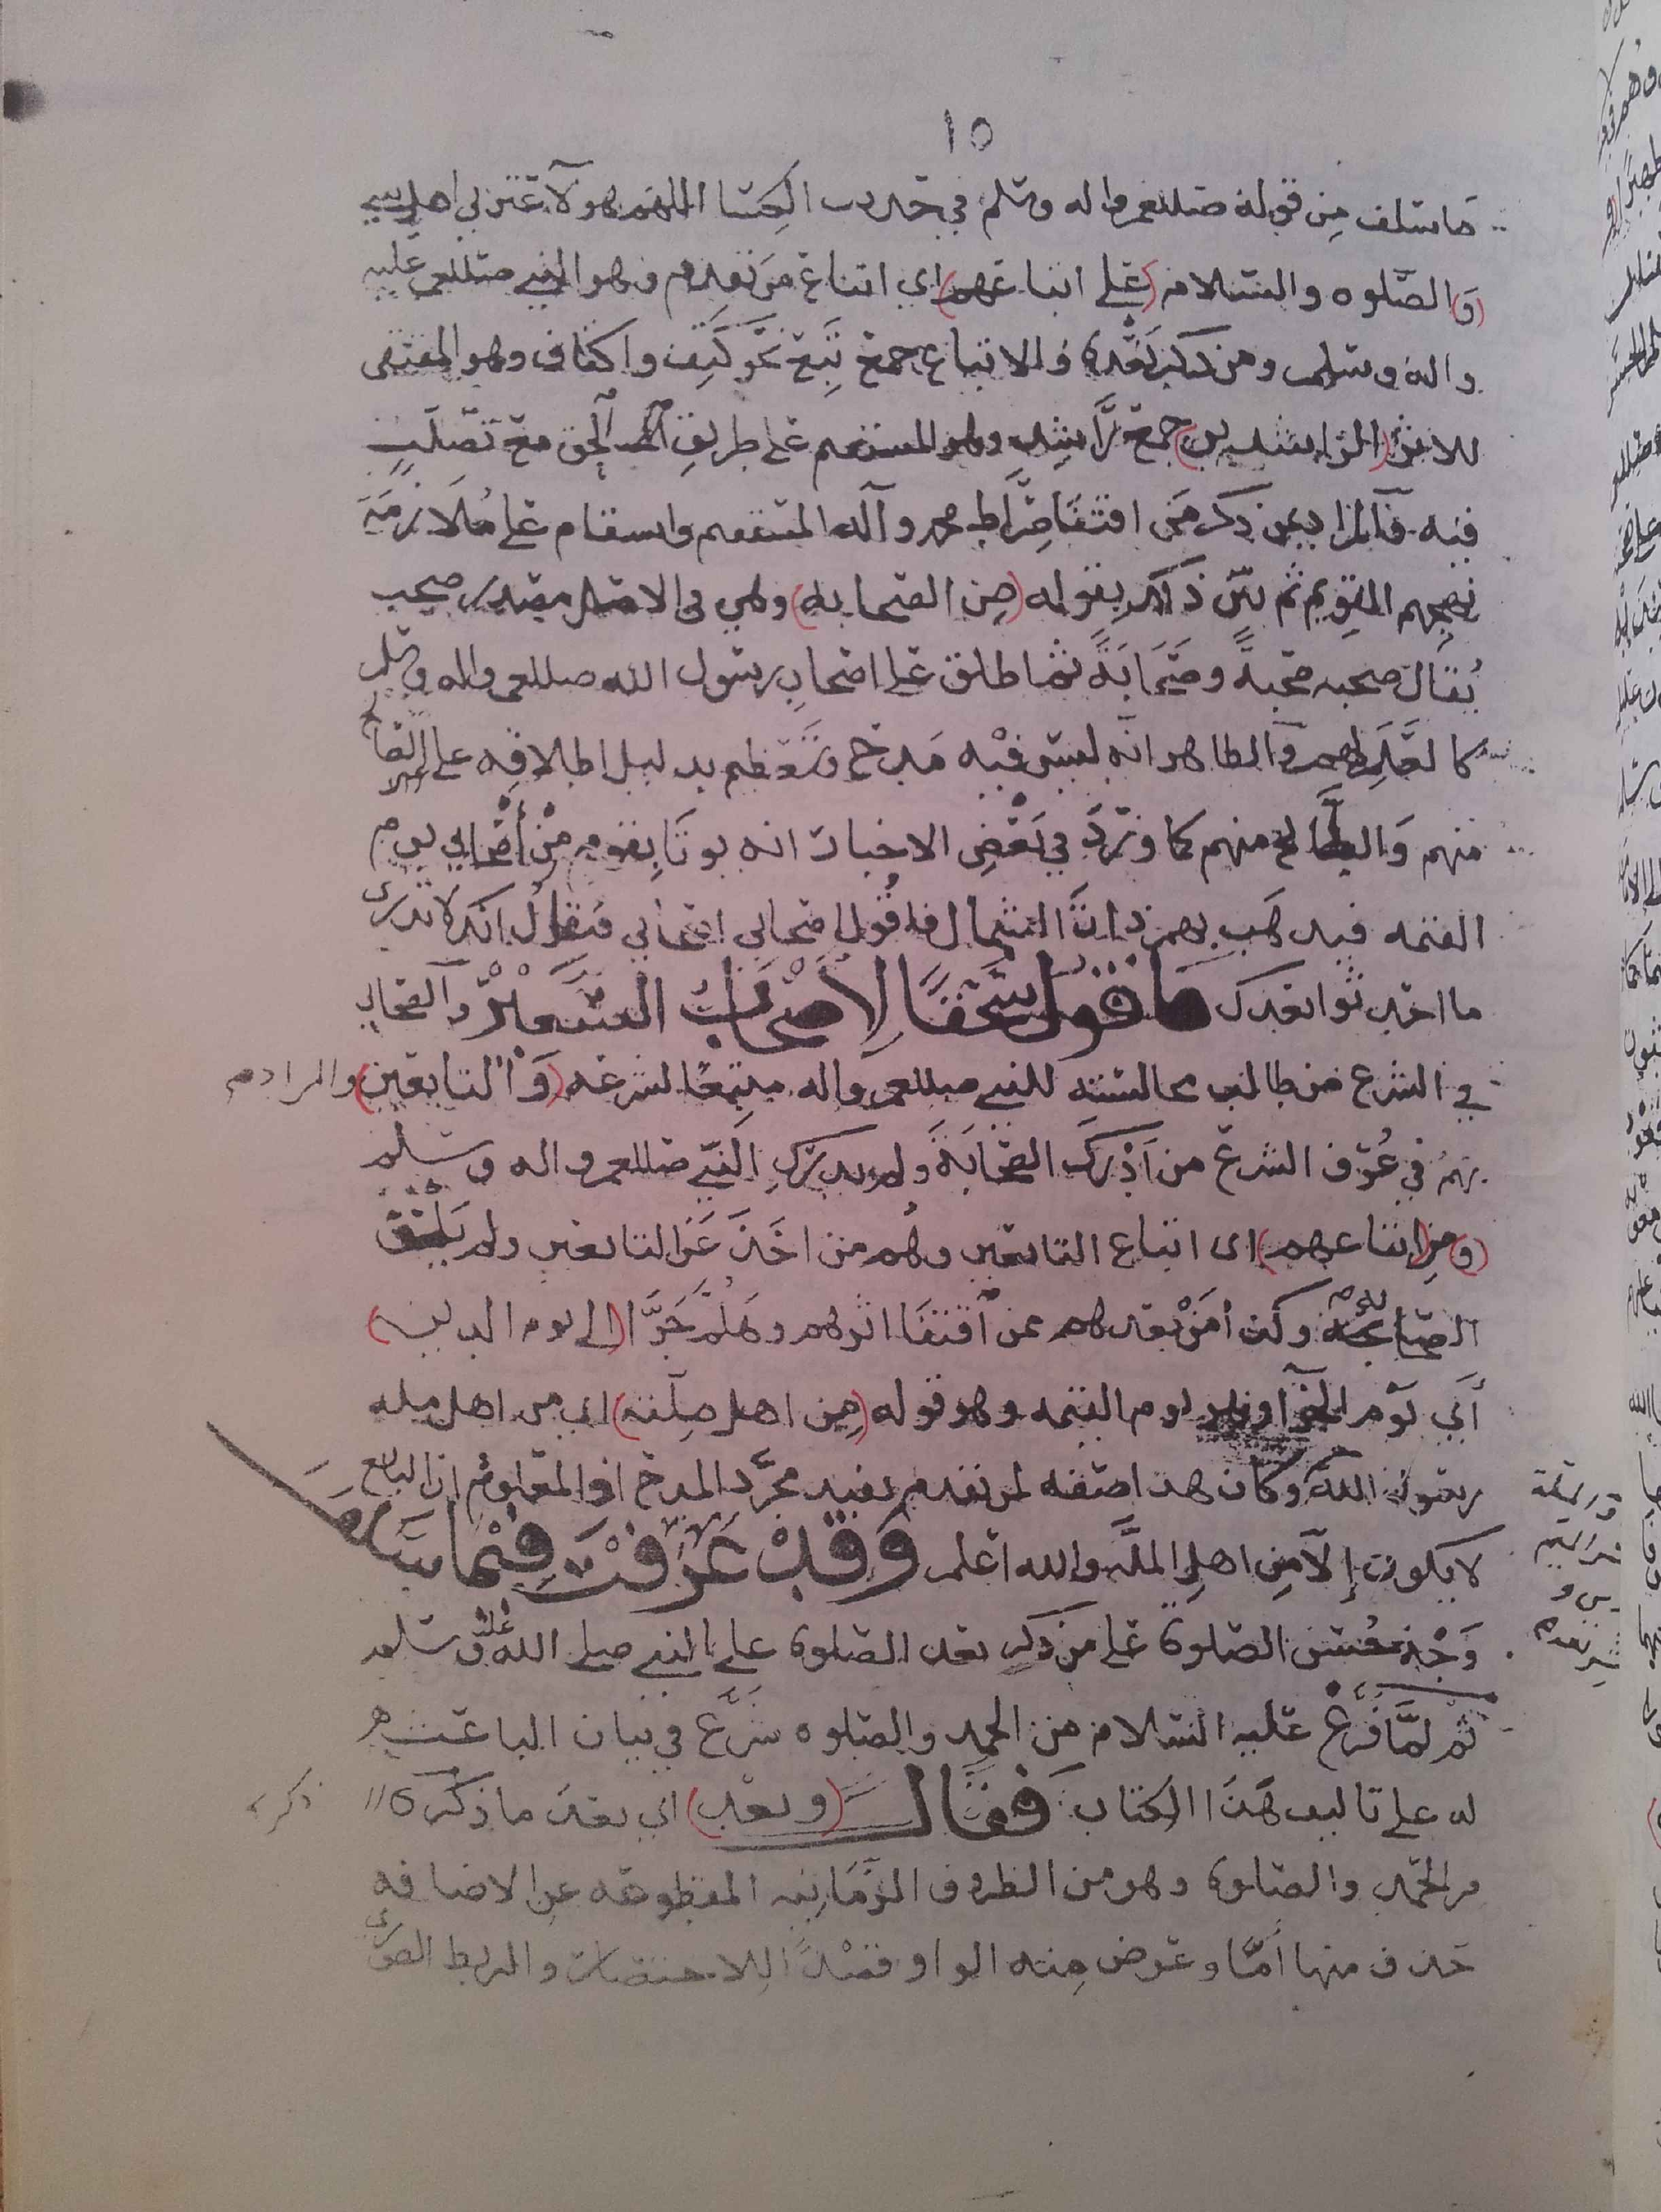 ١٥
ما سلف من قوله صللعم واله وسلم في حديث الكسا اللهم هولآ عترتي اهل بيتي
(و) الصلوه والسلام (على اتباعهم) اي اتباع من تقدم وهو النبي صللعم عليه
واله وسلم ومن ذكر بعده والاتباع جمع تبع نحو كتف واكتاف وهو المقتفى
للاثر (الراشدين) جمع راشد وهو المستقيم على طريق الحق مع تصلب
فيه فالمراد بمن ذكر من اقتفا صراط محمد وآله المستقيم واستقام على ملازمة
نهجهم القويم ثم بين ذلك بقوله (من الصحابه) وهي في الاصل مصدر صحب
يقال صحبه صحبة وصحابة ثم اطلق على اصحاب رسول الله صللعم واله وسلم
كالعلم لهم والظاهر انه ليس فيه مدح وتعظيم بدليل اطلاقه على الصالح
منهم والطالح منهم كما ورد في بعض الاخبار انه يوتا بقوم من أصحابي يوم
القيمه فيذهب بهم ذات الشمال فاقول اصحابي اصحابي فيقال انك لا تدرى
ما احدثوا بعدك فاقول سحقا لاصحاب السعير والصحابي
في الشرع من طالت مجالسته للنبي صللعم واله متبعا لشرعه (و التابعين) والمراد
بهم في عرف الشرع من أدرك الصحابة ولم يدرك النبي صللعم واله وسلم
(و من اتباعهم) اى اتباع التابعين وهم من اخذ عن التابعين ولم يلحق
الصحابة وكذا من بعدهم ممن اقتفا اثرهم وهلم جرا (الى يوم الدين)
أي يوم الجزآ وهو يوم القيمه وهو قوله (من اهل ملته) اي من اهل مله
رسول الله وكان هذا صفه لمن تقدم يفيد مجرد المدح اذ المعلوم ان التابع
لا يكون إلا من اهل الملة والله اعلم وقد عرفت فيما سلف
وجه حسن الصلوة على من ذكر بعد الصلوة على النبي صلى الله عليه وسلم
ثم لما فرغ عليه السلام من الحمد والصلوه شرع في بيان الباعث
له على تاليف هذا الكتاب فقال (وبعد) اي بعد ما ذكره
من الحمد والصلوة وهو من الظروف الزمانيه المقطوعه عن الاضافه
حذف منها أما وعوض منه الواو قصدا للاختصار والربط الصورى